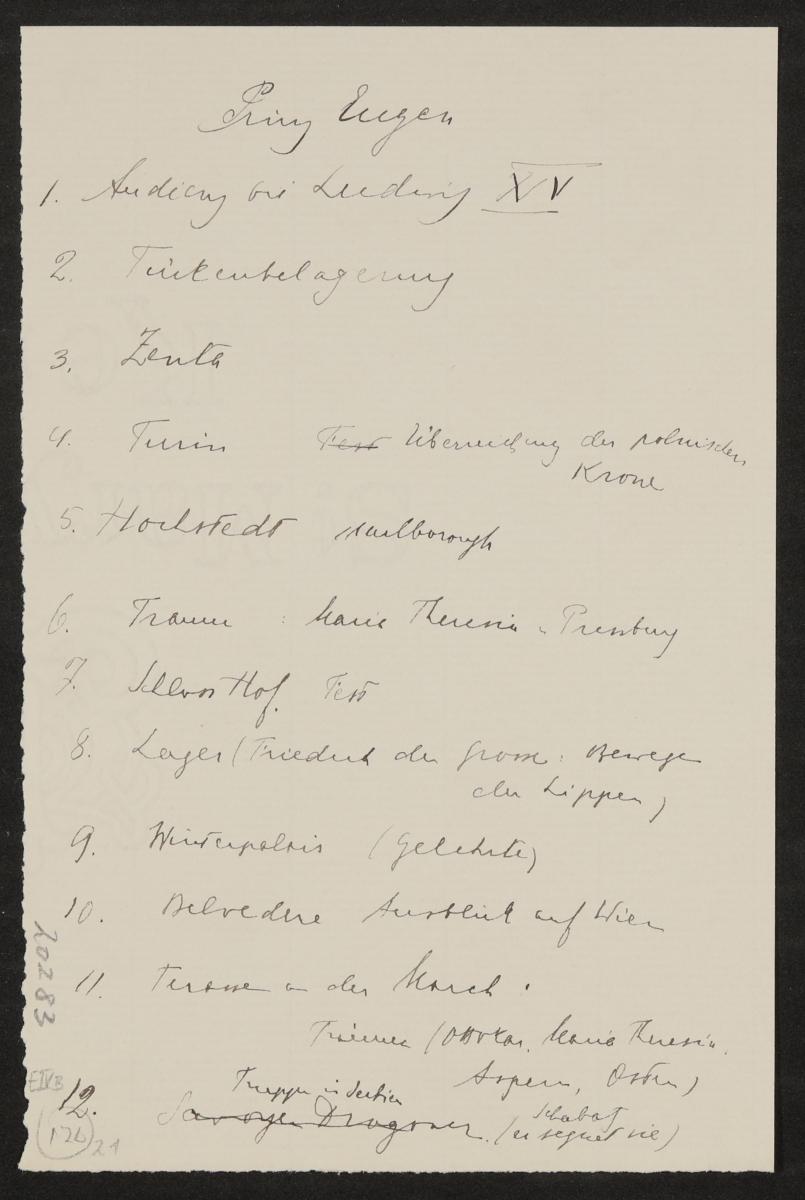 Prinz Eugen
1. Audienz bei Ludwig XIV
2. Türkenbelagerung
3. Zenta
4. Turin Fest Überreichung der polnischen
Krone
5. Hochstedt Marlborough
6. Traum : Maria Theresia Pressburg
7. Schloss Hof. Fest
8. Lager (Friedrich der Grosse: Bewegen
der Lippen)
9. Winterpalais (Gelehrte)
10. Belvedere Ausblick auf Wien
11. Terasse an der March.
Träumen (Ottokar, Maria Theresia,
Aspern, Osten)
12. Truppen in Serbien
Savoyen Dragoner. (er segnet sie)
Schabatz
20283
EIVB
174
21